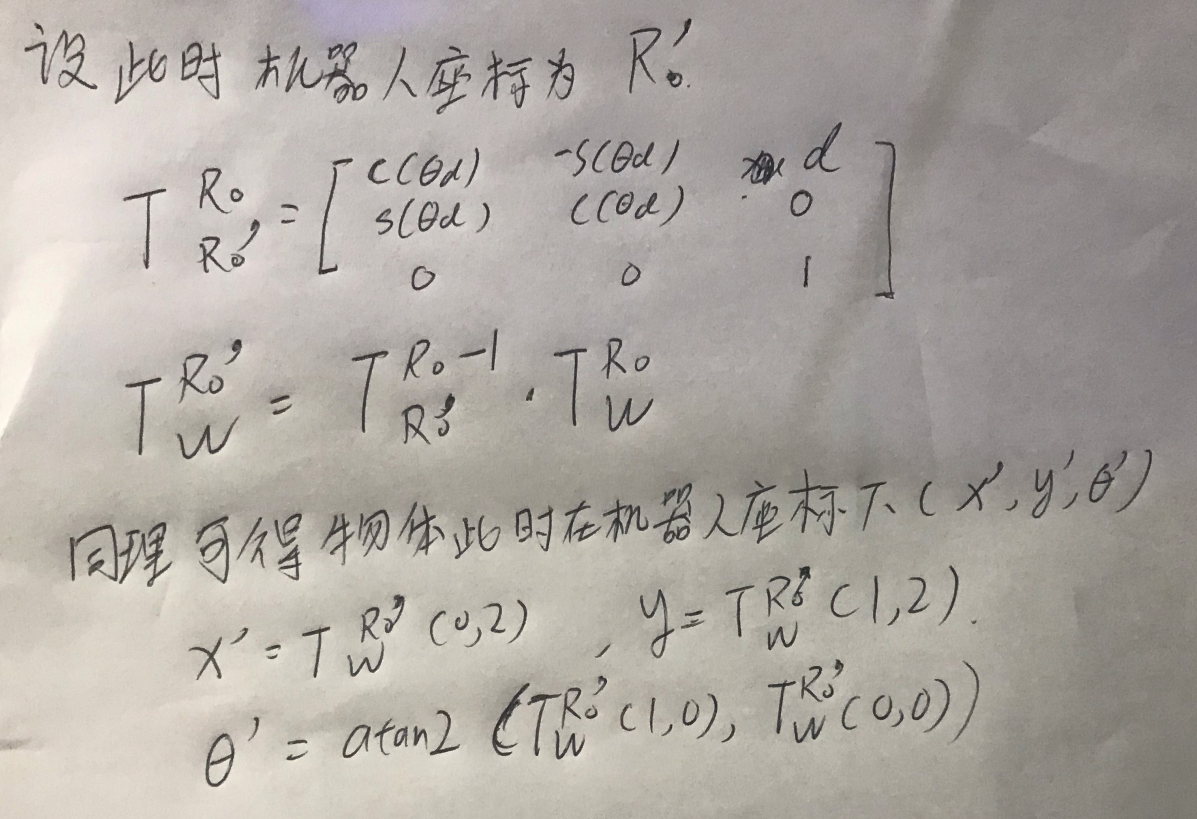 设此时机器人座标为 R₀′.
T^{R₀}_{R₀′} = [ c(θd) -s(θd) d
s(θd) c(θd) 0
0 0 1 ]
T^{R₀′}_W = T^{R₀ -1}_{R₀′} · T^{R₀}_W
同理可得物体此时在机器人座标下(x′, y′, θ′)
x′ = T^{R₀′}_W (0,2) , y = T^{R₀′}_W (1,2).
θ′ = atan2 (T^{R₀′}_W (1,0), T^{R₀′}_W (0,0))